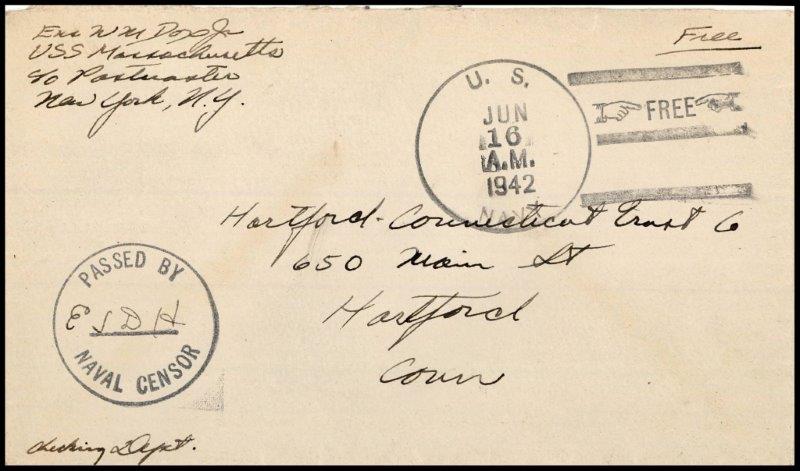 Ens Wm Dox Jr
USS Massachusetts
c/o Postmaster
New York, N.Y.
Free
U. S.
JUN
16
A.M.
1942
NAVY
FREE
Hartford-Connecticut Trust Co
650 Main St
Hartford
Conn
PASSED BY
E J D H
NAVAL CENSOR
Checking Dept.